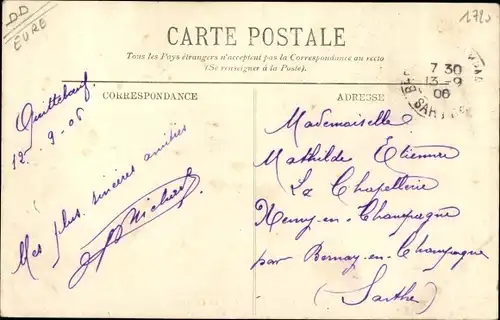 DD
EURE
1720
CARTE POSTALE
Tous les Pays étrangers n'acceptent pas la Correspondance au recto
(Se renseigner à la Poste).
7 30
13 - 9
06
SARTHE
CORRESPONDANCE
ADRESSE
Quittebeuf
12 - 9 - 06
Mes plus sincères amitiés
Mademoiselle
Mathilde Etienne
La Chapellerie
Neuvy-en-Champagne
par Bernay-en-Champagne
(Sarthe)